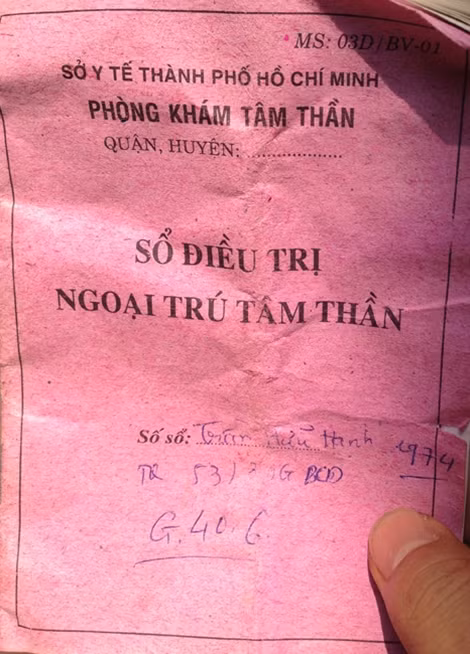 MS: 03D/BV-01
SỞ Y TẾ THÀNH PHỐ HỒ CHÍ MINH
PHÒNG KHÁM TÂM THẦN
QUẬN, HUYỆN: ....................
SỔ ĐIỀU TRỊ
NGOẠI TRÚ TÂM THẦN
Số sổ: Hạnh 1974
53/
G.40.6